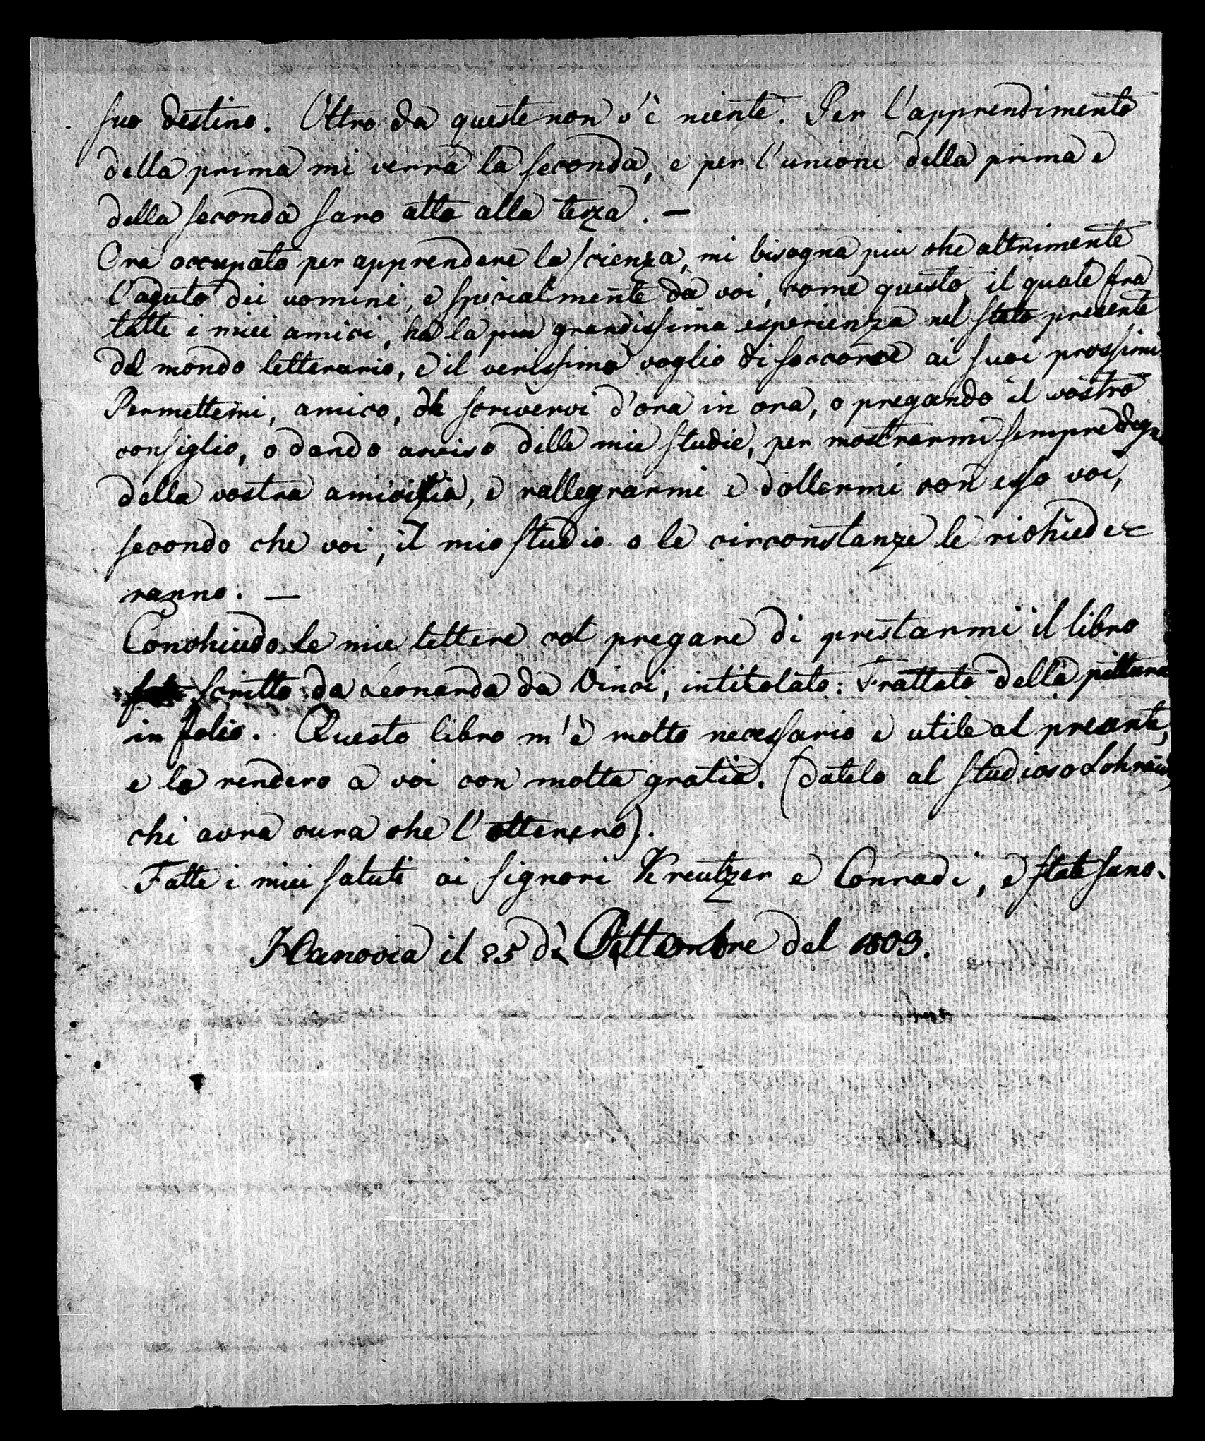 suo destino. Oltro da queste non v'è niente. Per l'apprendimento
della prima mi verrà la seconda, e per l'unione della prima e
della seconda saro atto alla terza. —
Ora occupato per apprendere la scienza, mi bisogna piu che altrimente
l'aguto dei uomini, e specialmente da voi, come questo, il quale fra
tutte i miei amici, ha la piu grandissima esperienza nel stato presente
del mondo letterario, e il verissimo voglio di soccorre ai suoi prossimi
Permettemi, amico, di scrivervi d'ora in ora, o pregando il vostro
consiglio, o dando avviso delle mie studie, per mostrarmi sempre degn
della vostra amicizia, e rallegrarmi e dollermi con esso voi,
secondo che voi, il mio studio o le circonstanze le richiede-
ranno. —
Conchiudo le mie lettere col pregare di prestarmi il libro
scritto da Leonardo da Vinci, intitolato: Trattato della pittura
in folio. Questo libro m'è molto necessario e utile al presante,
e lo rendero a voi con molta gratia. (datelo al studioso
chi avra cura che l'ottenero).
Fatte i miei saluti ai signori Kreutzer e Conradi, e state sano.
Hanovia il 25 di Ottombre del 1803.